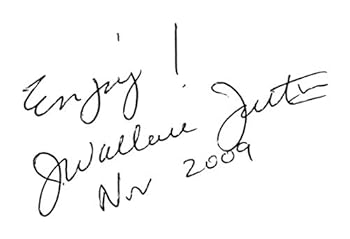 Enjoy!
J. Wallace
Nov 2009